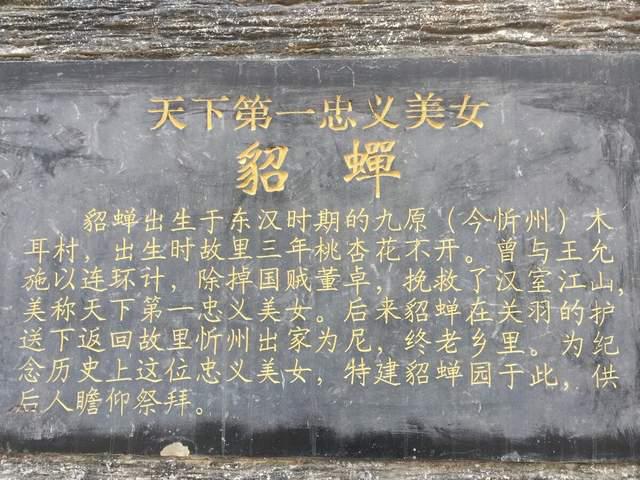 天下第一忠义美女
貂蝉
貂蝉出生于东汉时期的九原（今忻州）木
耳村，出生时故里三年桃杏花不开。曾与王允
施以连环计，除掉国贼董卓，挽救了汉室江山，
美称天下第一忠义美女。后来貂蝉在关羽的护
送下返回故里忻州出家为尼，终老乡里。为纪
念历史上这位忠义美女，特建貂蝉园于此，供
后人瞻仰祭拜。